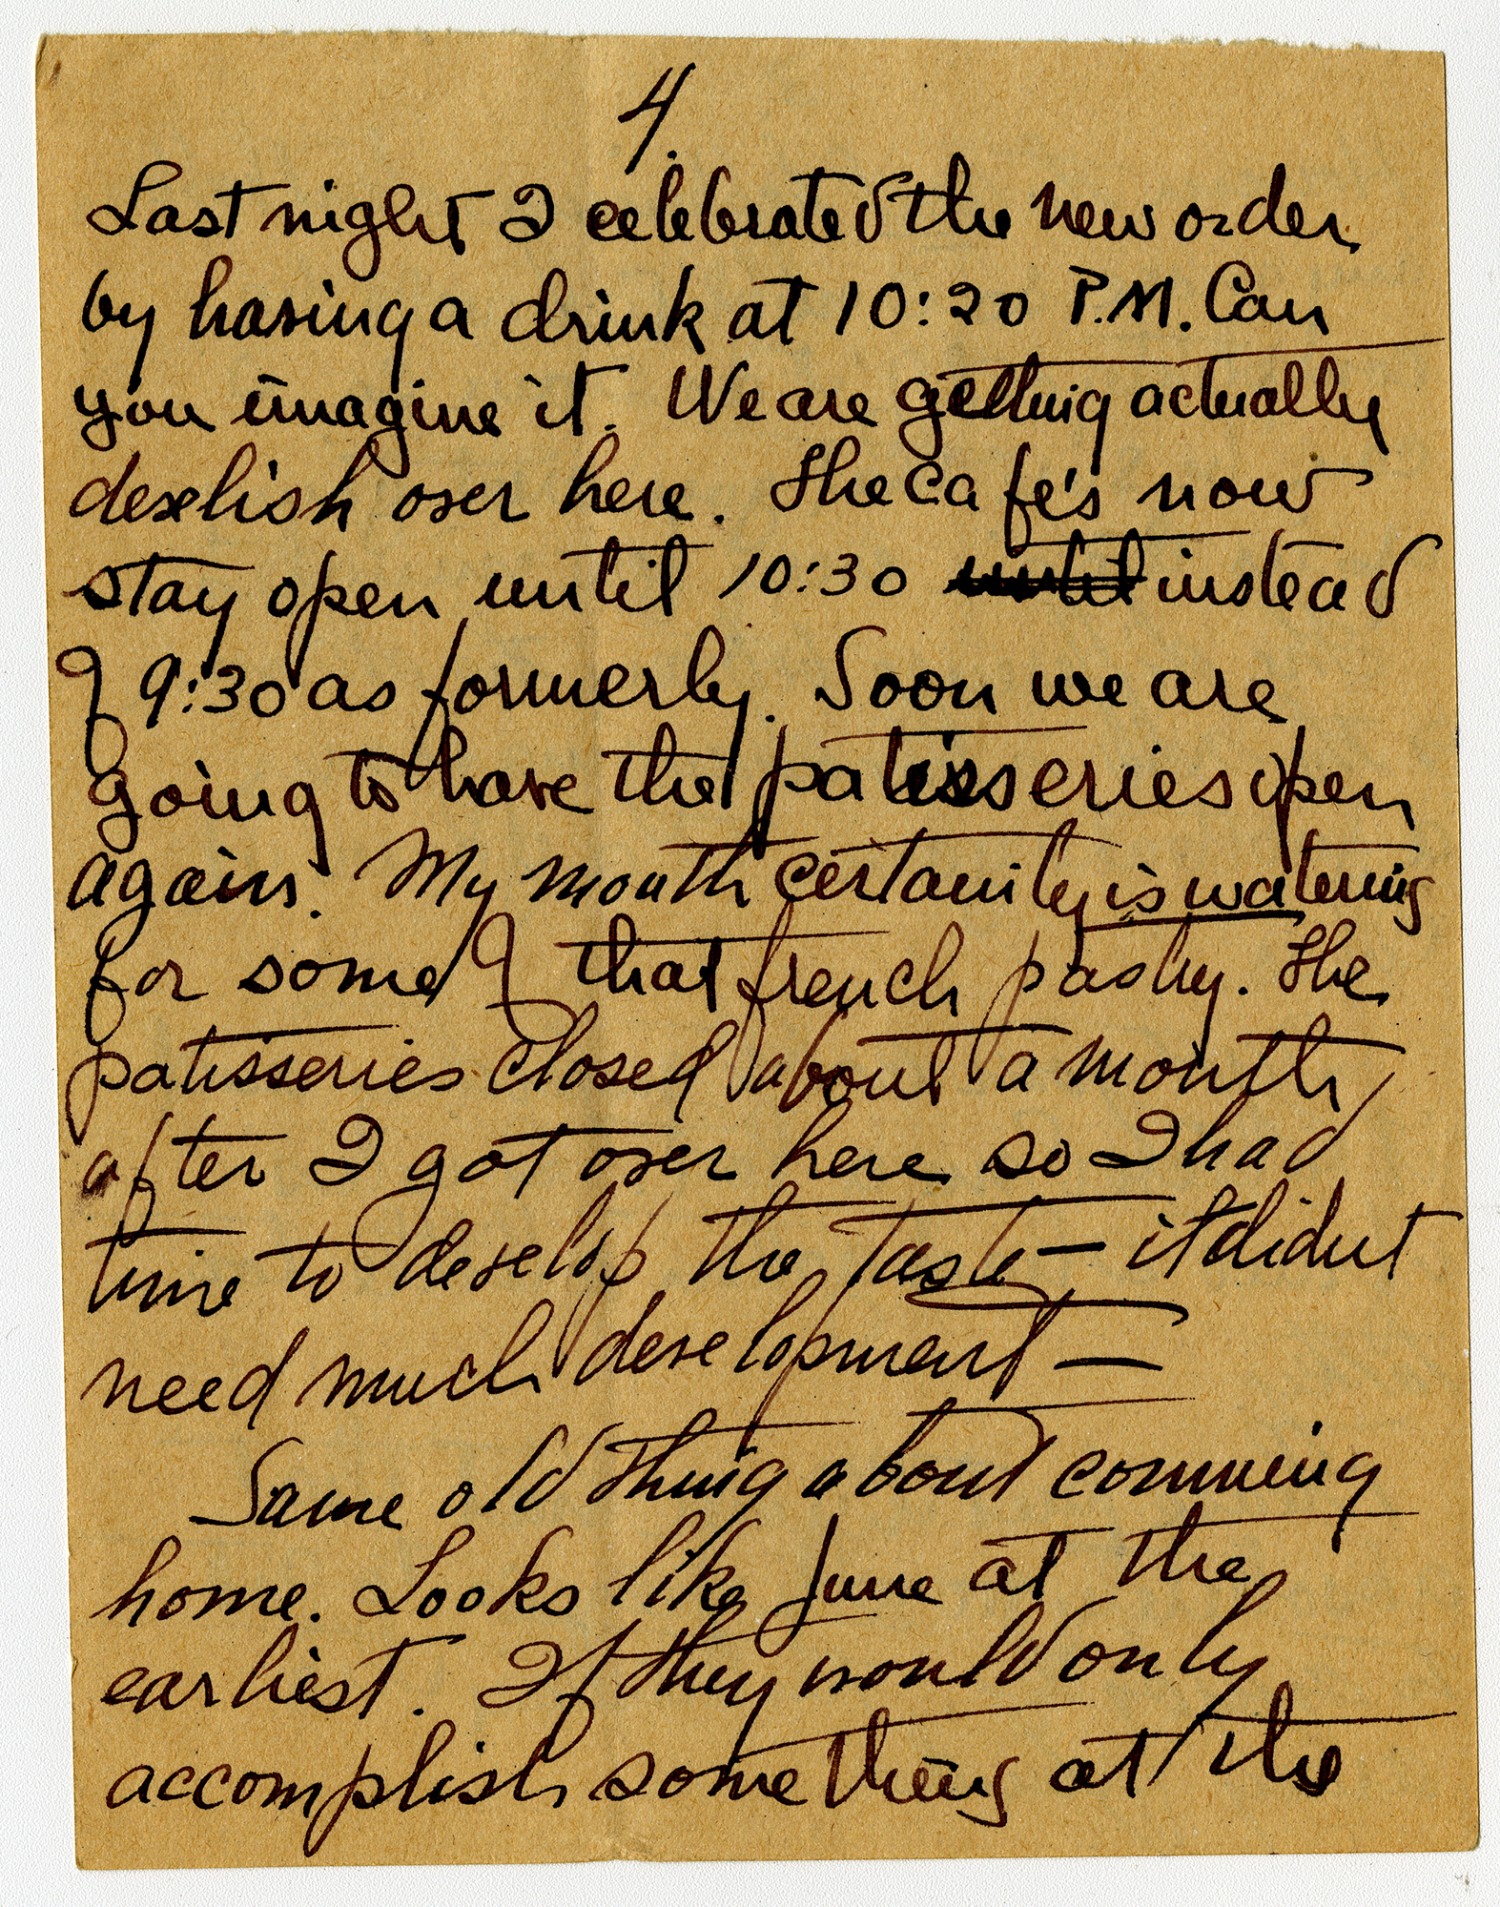 4.
Last night I celebrated the new order
by having a drink at 10:20 P.M. Can
you imagine it. We are getting actually
develish over here. The cafe's now
stay open until 10:30 until instead
of 9:30 as formerly. Soon we are
going to have the patisseries open
again. My mouth certainly is watering
for some of that french pastry. The
patisseries closed about a month
after I got over here so I had
time to develop the taste — it didnt
need much development —
Same old thing about comming
home. Looks like June at the
earliest. If they would only
accomplish something at the